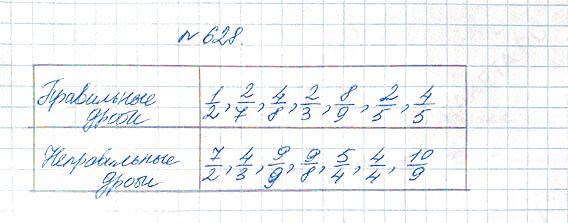 № 628.
Правильные дроби 1/2, 2/7, 4/8, 2/3, 8/9, 2/5, 4/5
Неправильные дроби 7/2, 4/3, 9/9, 9/8, 5/4, 4/4, 10/9